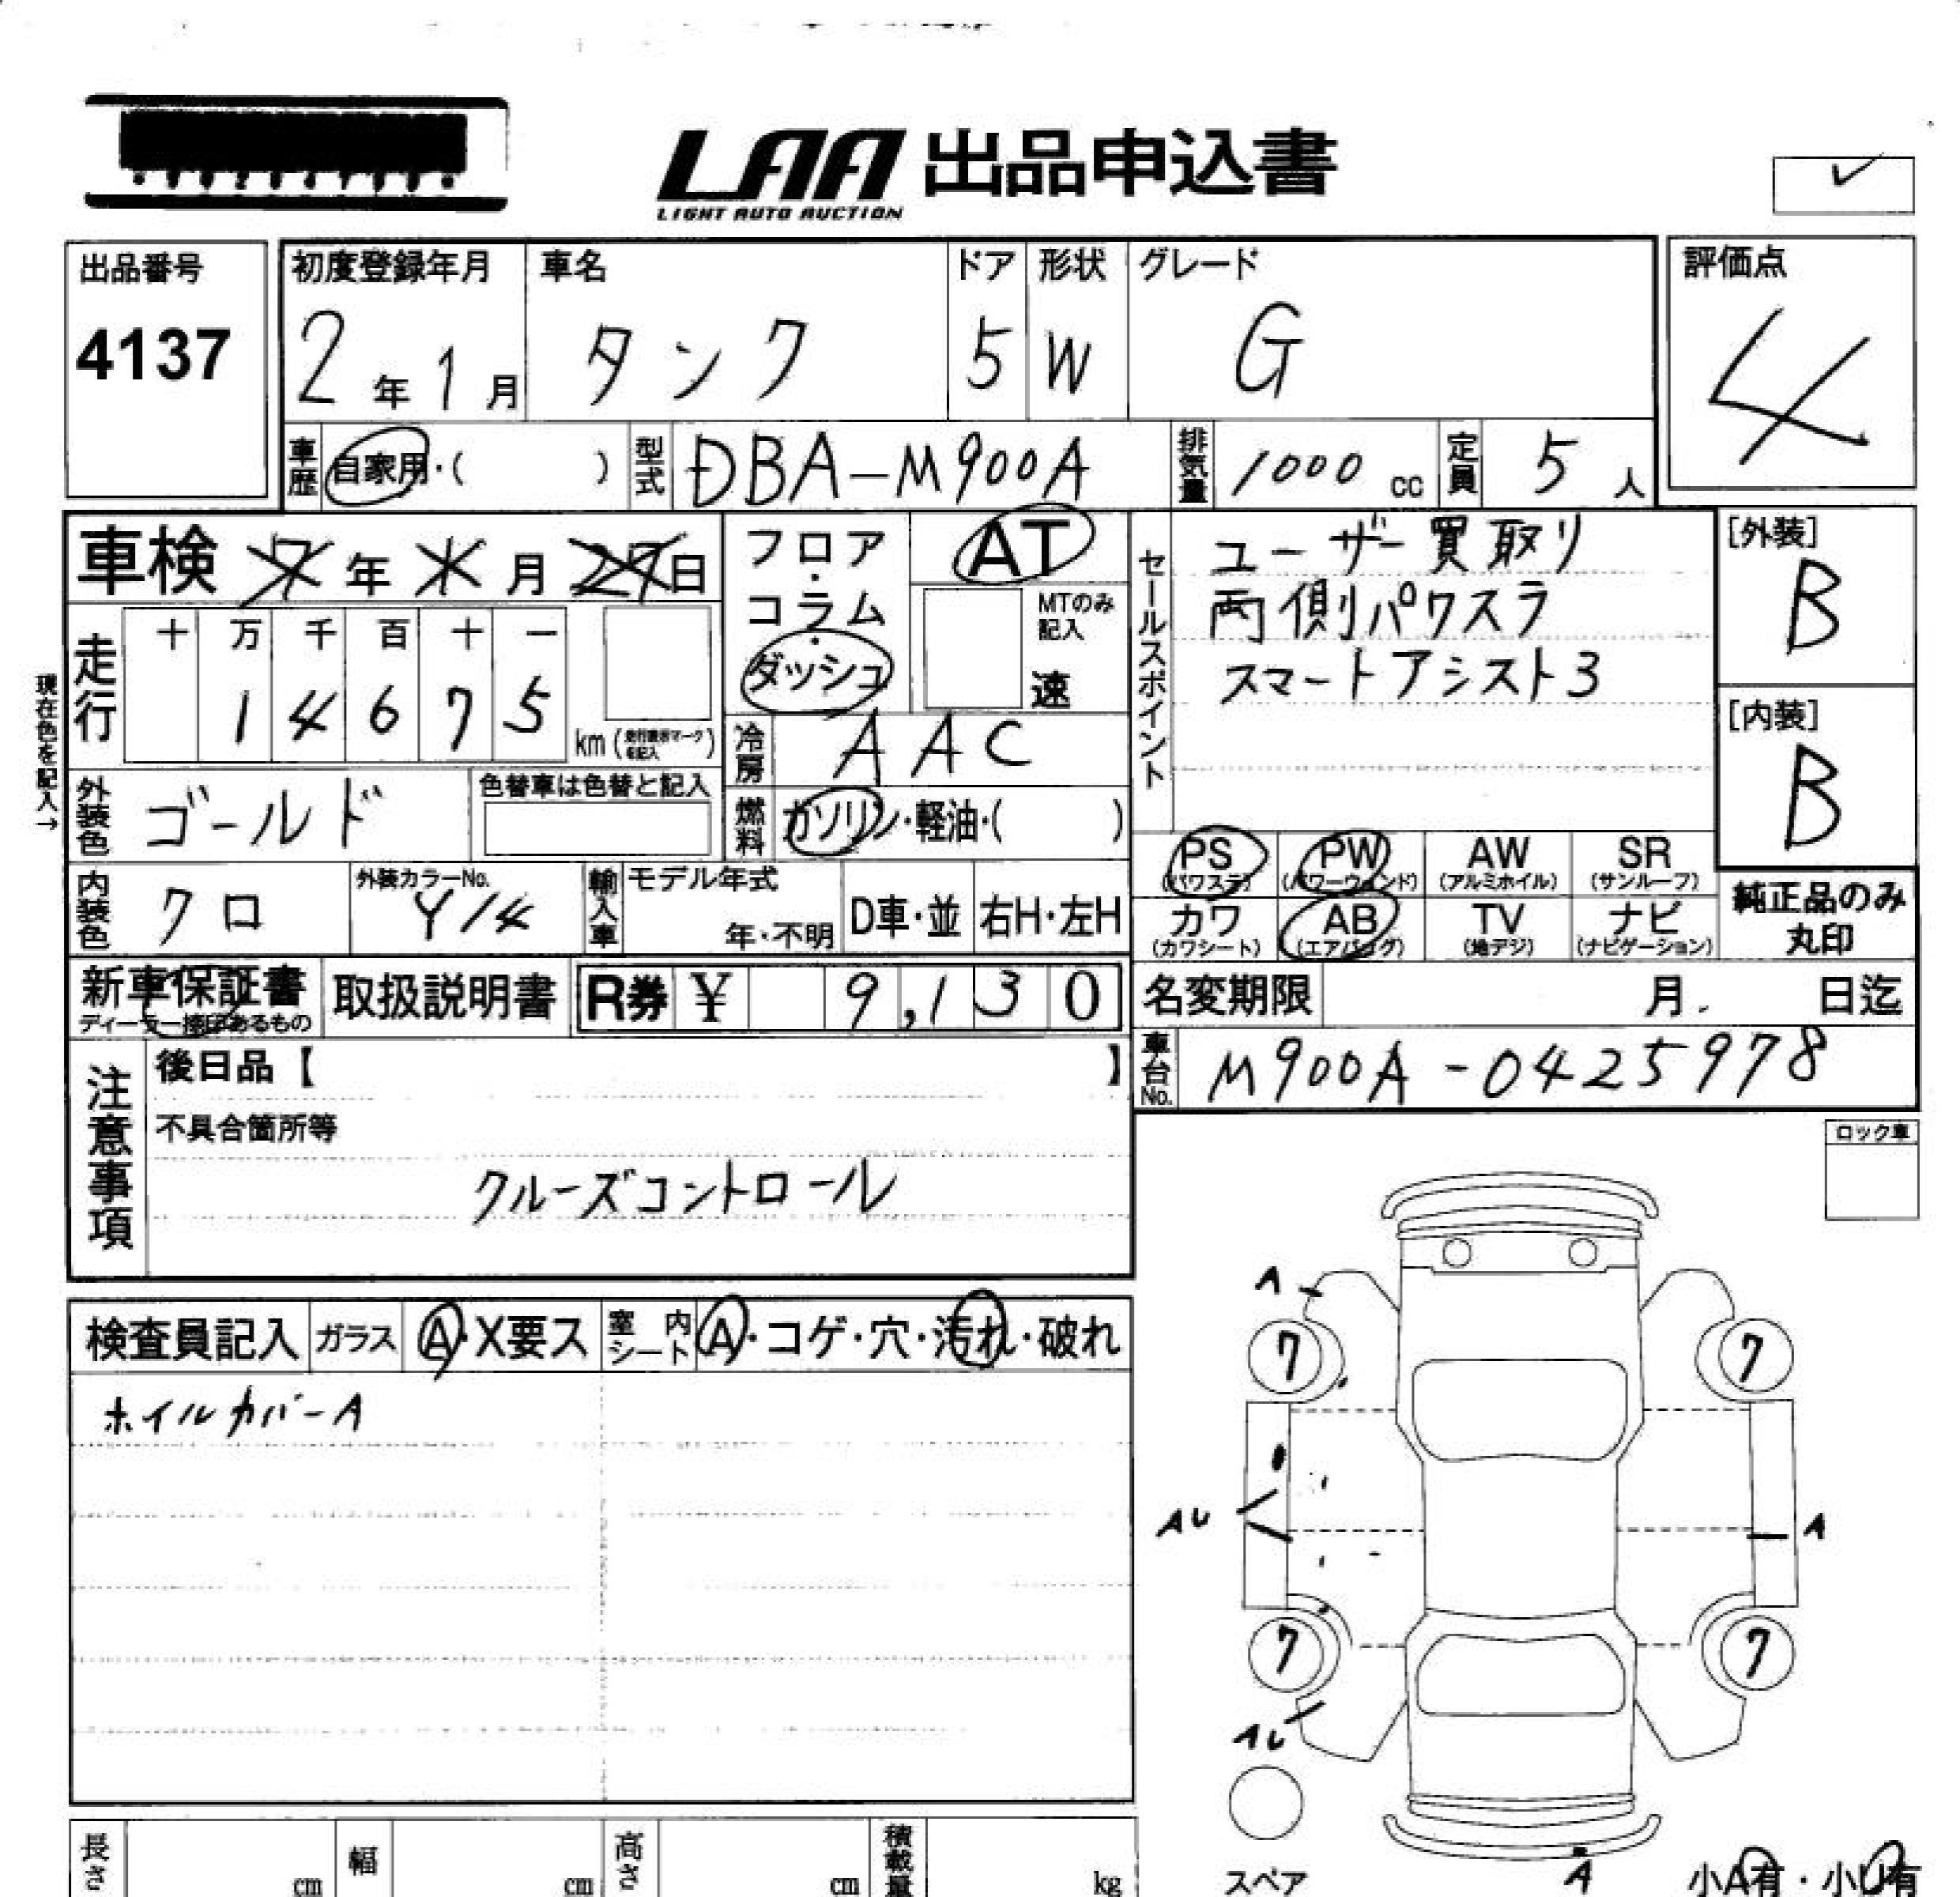 LAA 出品申込書
LIGHT AUTO AUCTION
出品番号
4137
初度登録年月
2年1月
車名
タンク
ドア
5
形状
W
グレード
G
評価点
4
車歴
自家用・( )
型式
DBA-M900A
排気量
1000 cc
定員
5人
車検 年 月 日
走行
十 万 千 百 十 一
1 4 6 7 5
km (走行表示マークを記入)
現在色を記入→
フロア・コラム・ダッシュ
AT
MTのみ記入
速
冷房
AAC
燃料
ガソリン・軽油・( )
セールスポイント
ユーザー買取り
両側パワスラ
スマートアシスト3
[外装]
B
[内装]
B
外装色
ゴールド
色替車は色替と記入
内装色
クロ
外装カラーNo.
Y14
輸入車
モデル年式
年・不明
D車・並
右H・左H
PS (パワステ)
PW (パワーウィンド)
AW (アルミホイル)
SR (サンルーフ)
カワ (カワシート)
AB (エアバッグ)
TV (地デジ)
ナビ (ナビゲーション)
純正品のみ丸印
新車保証書
ディーラー捺印あるもの
取扱説明書
R券 ¥ 9,130
名変期限 月 日迄
車台No.
M900A-0425978
注意事項
後日品【 】
不具合箇所等
クルーズコントロール
ロック車
検査員記入
ガラス
A・X要ス
室内シート
A・コゲ・穴・汚れ・破れ
ホイルカバーA
A
7
7
AU
A
7
7
AU
スペア
A
小A有・小U有
長さ cm
幅 cm
高さ cm
積載量 kg